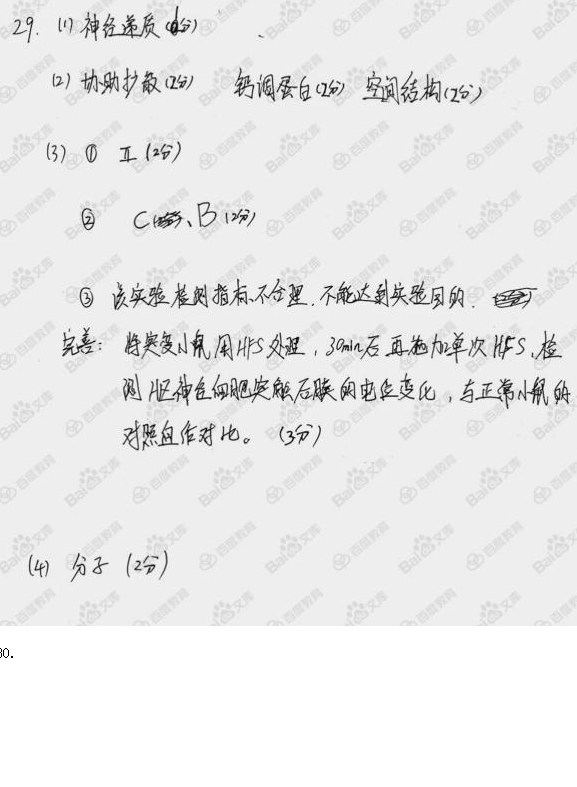 29. (1) 神经递质 (1分)
(2) 协助扩散 (2分) 钙调蛋白 (2分) 空间结构 (2分)
(3) ① II (2分)
② C、B (2分)
③ 该实验检测指标不合理.不能达到实验目的.
完善: 将突变小鼠用HFS处理, 30min后再施加单次HFS, 检
测H区神经细胞突触后膜的电位变化, 与正常小鼠的
对照组作对比。 (3分)
(4) 分子 (2分)
30.